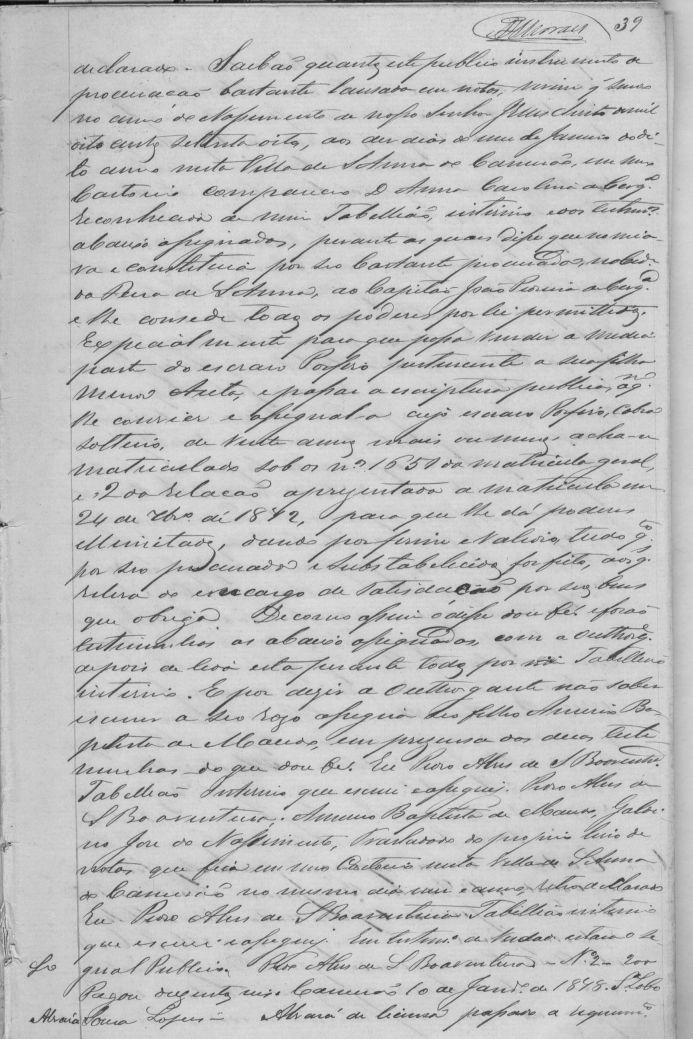 Moraes 39
declarado. Saibaõ quantos este publico instrumento de
procuracaõ bastante lansado em notas, virem q' sendo
no anno do Nascimento de nosso Senhor Jesus Christo de mil
oito centos setenta oito, aos dez dias do mes de Janeiro do di-
to anno nesta Villa de S Anna do Camisaõ, em meu
Cartorio compareceo D Anna Carolina
reconhecida de mim Tabelliaõ interino e das testmas
abaixo assignadas, perante as quais disse que nomia-
va e constituia por seo bastante procurador, na Cida-
da Feira de S Anna, ao Capitaõ Joaõ
e lhe consede todos os poderes por lei permittidos.
Especialmente para que possa vender a media
part do escravo Porfirio pertencente a sua filha
menor e passar a escriptura publica, a q'
lhe convier e assignal-a cujo escravo Porfirio, Cabra
solteiro, de vinte annos mais ou menos acha-se
matriculado sob os nos 1651 da matricula geral,
e 2 da relacaõ apresentada a matricula em
24 de 7bro. de 1872, para que lhe dá poderes
illimitados, dando por firme e valioso, tudo q'
por seo procurador e substabelecidos for feito, aos q's
releva do encargo de satisdacaõ por seus bens
que obriga. De como assim o disse dou fé. e foraõ
testimunhas as abaixo assignadas, com a outhorgte
depois de lida esta perante todos por mim Tabelliaõ
interino. E por dizer a Outhorgante naõ saber
escrever a seo rogo assigna seo filho Americo Ba-
ptista de Macedo, em presensa das duas teste
munhas do que dou fé. Eu Pedro Alves de S Boaventura
Tabelliaõ Interino que escrevi e assignei. Pedro Alves de
S Boaventura, Americo Baptista de Macedo, Galdi-
no Jose do Nascimento, Trasladado do proprio livro de
notas que fica em meo Cartorio nesta Villa de S Anna
do Camisaõ no mesmo dia mes e anno retro declarado
Eu Pedro Alves de S Boaventura Tabelliaõ interino
que escrevi e assignei. Em testmo. de verdade estava o si-
gnal Publico. Pedro Alves de S Boaventura - No 2 - 200
Pagou duzentos reis. Camisaõ 10 de Janro. de 1878. Lobo
Alvará Souza Lopes - Alvará de licensa passado a requerimo